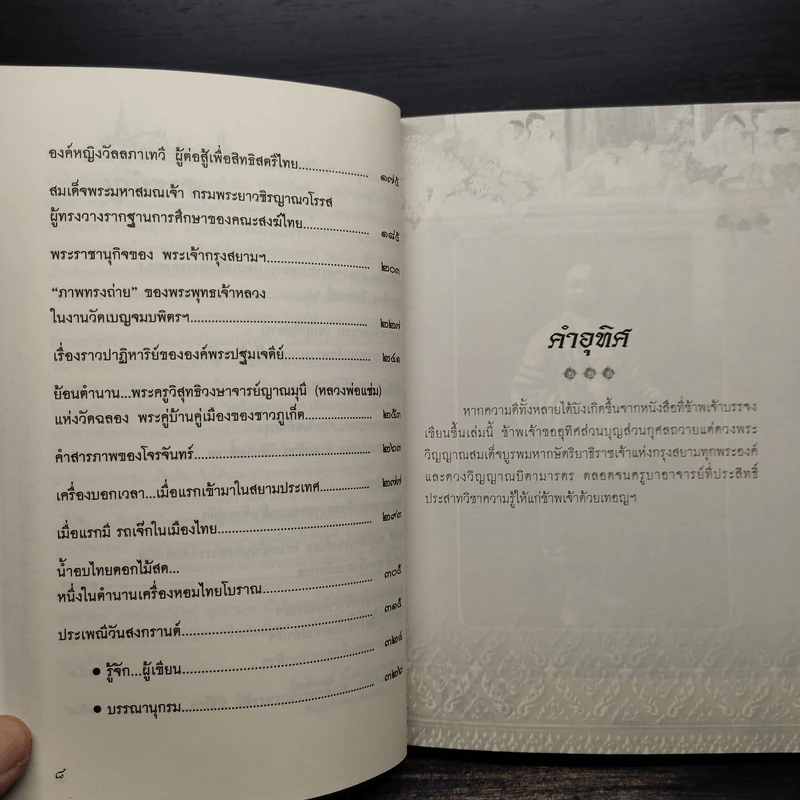 องค์หญิงวัลลภาเทวี ผู้ต่อสู้เพื่อสิทธิสตรีไทย.................... ๑๗๕
สมเด็จพระมหาสมณเจ้า กรมพระยาวชิรญาณวโรรส
ผู้ทรงวางรากฐานการศึกษาของคณะสงฆ์ไทย.................... ๑๘๕
พระราชานุกิจของ พระเจ้ากรุงสยามฯ.................... ๒๐๓
“ภาพทรงถ่าย” ของพระพุทธเจ้าหลวง
ในงานวัดเบญจมบพิตรฯ.................... ๒๒๗
เรื่องราวปาฏิหาริย์ขององค์พระปฐมเจดีย์.................... ๒๔๑
ย้อนตำนาน...พระครูวิสุทธิวงษาจารย์ญาณมุนี (หลวงพ่อแช่ม)
แห่งวัดฉลอง พระคู่บ้านคู่เมืองของชาวภูเก็ต.................... ๒๕๓
คำสารภาพของโจรจันทร์.................... ๒๖๓
เครื่องบอกเวลา...เมื่อแรกเข้ามาในสยามประเทศ.................... ๒๗๗
เมื่อแรกมี รถเจ๊กในเมืองไทย.................... ๒๙๓
น้ำอบไทยดอกไม้สด...
หนึ่งในตำนานเครื่องหอมไทยโบราณ.................... ๓๐๕
ประเพณีวันสงกรานต์.................... ๓๑๕
● รู้จัก...ผู้เขียน.................... ๓๒๔
● บรรณานุกรม.................... ๓๒๖
๘
คำอุทิศ
หากความดีทั้งหลายได้บังเกิดขึ้นจากหนังสือที่ข้าพเจ้าบรรจง
เขียนขึ้นเล่มนี้ ข้าพเจ้าขออุทิศส่วนบุญส่วนกุศลถวายแด่ดวงพระ
วิญญาณสมเด็จบูรพมหากษัตริยาธิราชเจ้าแห่งกรุงสยามทุกพระองค์
และดวงวิญญาณบิดามารดา ตลอดจนครูบาอาจารย์ที่ประสิทธิ์
ประสาทวิชาความรู้ให้แก่ข้าพเจ้าด้วยเทอญฯ